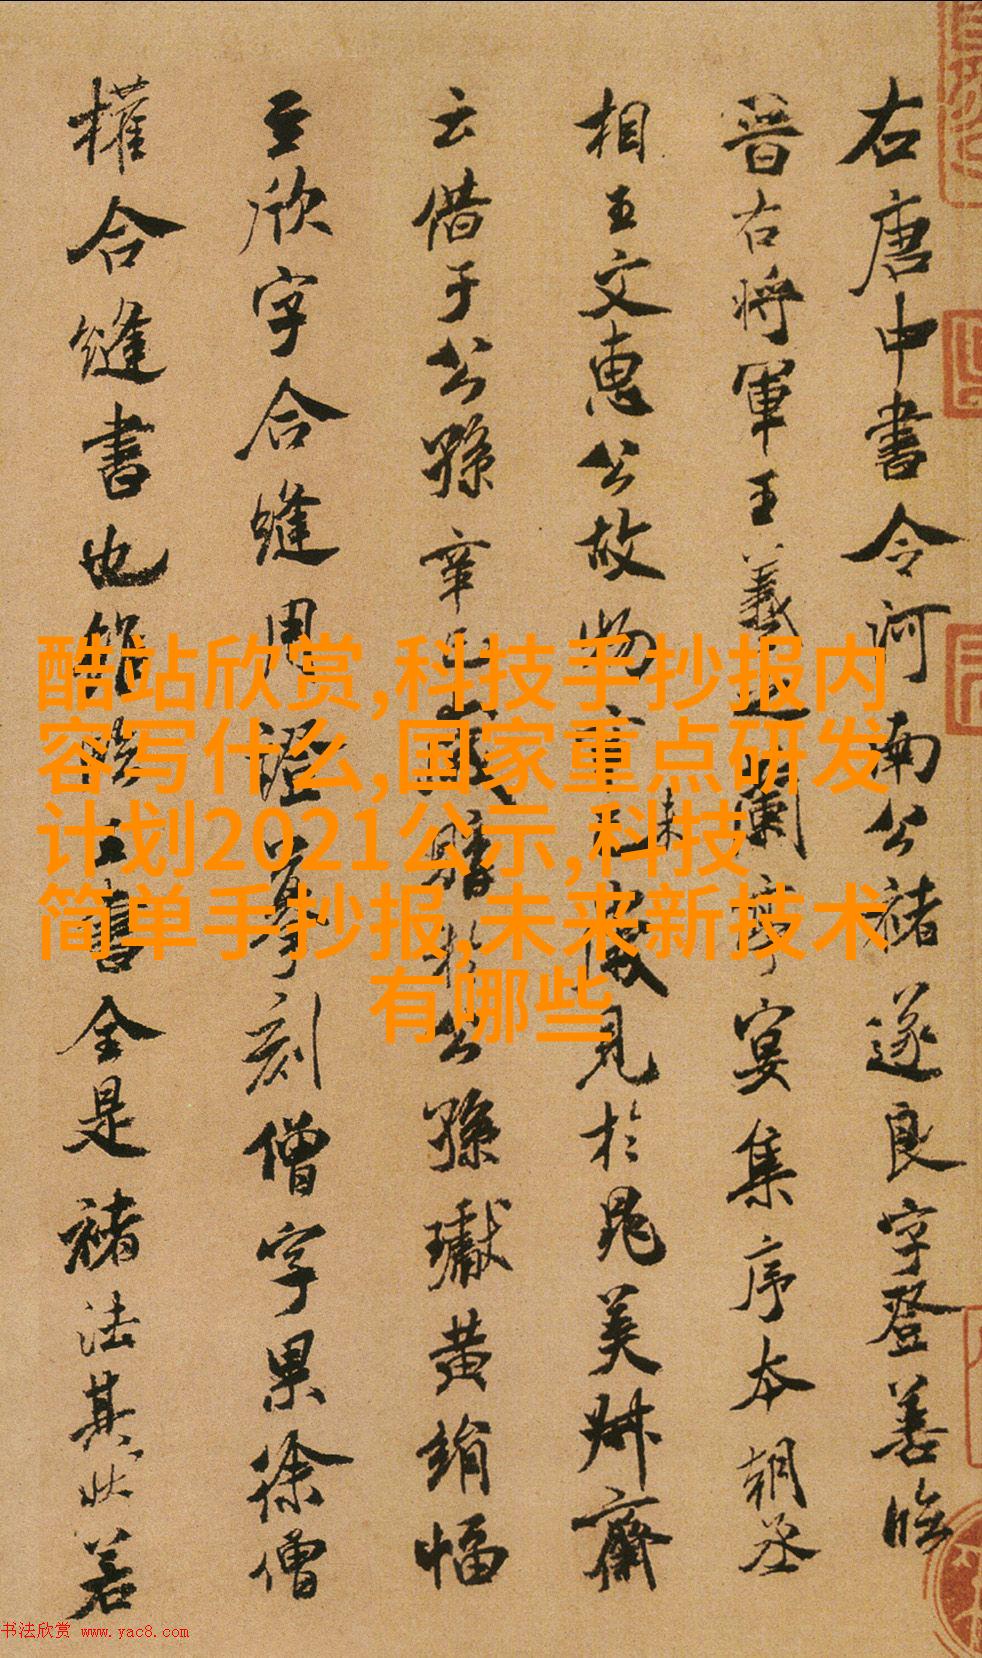 右唐中書令河南公褚遂良字登善臨
晉右將軍王羲之蘭亭宴集序本朝丞
相王文惠公故物辛未歲見於晁美叔齋
云借于公孫辛巳歲購於公孫瓛黃絹幅
至欣字合縫用證摹刻僧字果徐僧
權合縫書也雖臨王書全是褚法其狀若
酷站欣赏,科技手抄报内
容写什么,国家重点研发
计划2021公示,科技
简单手抄报,未来新技术
有哪些
书法欣赏 www.yac8.com